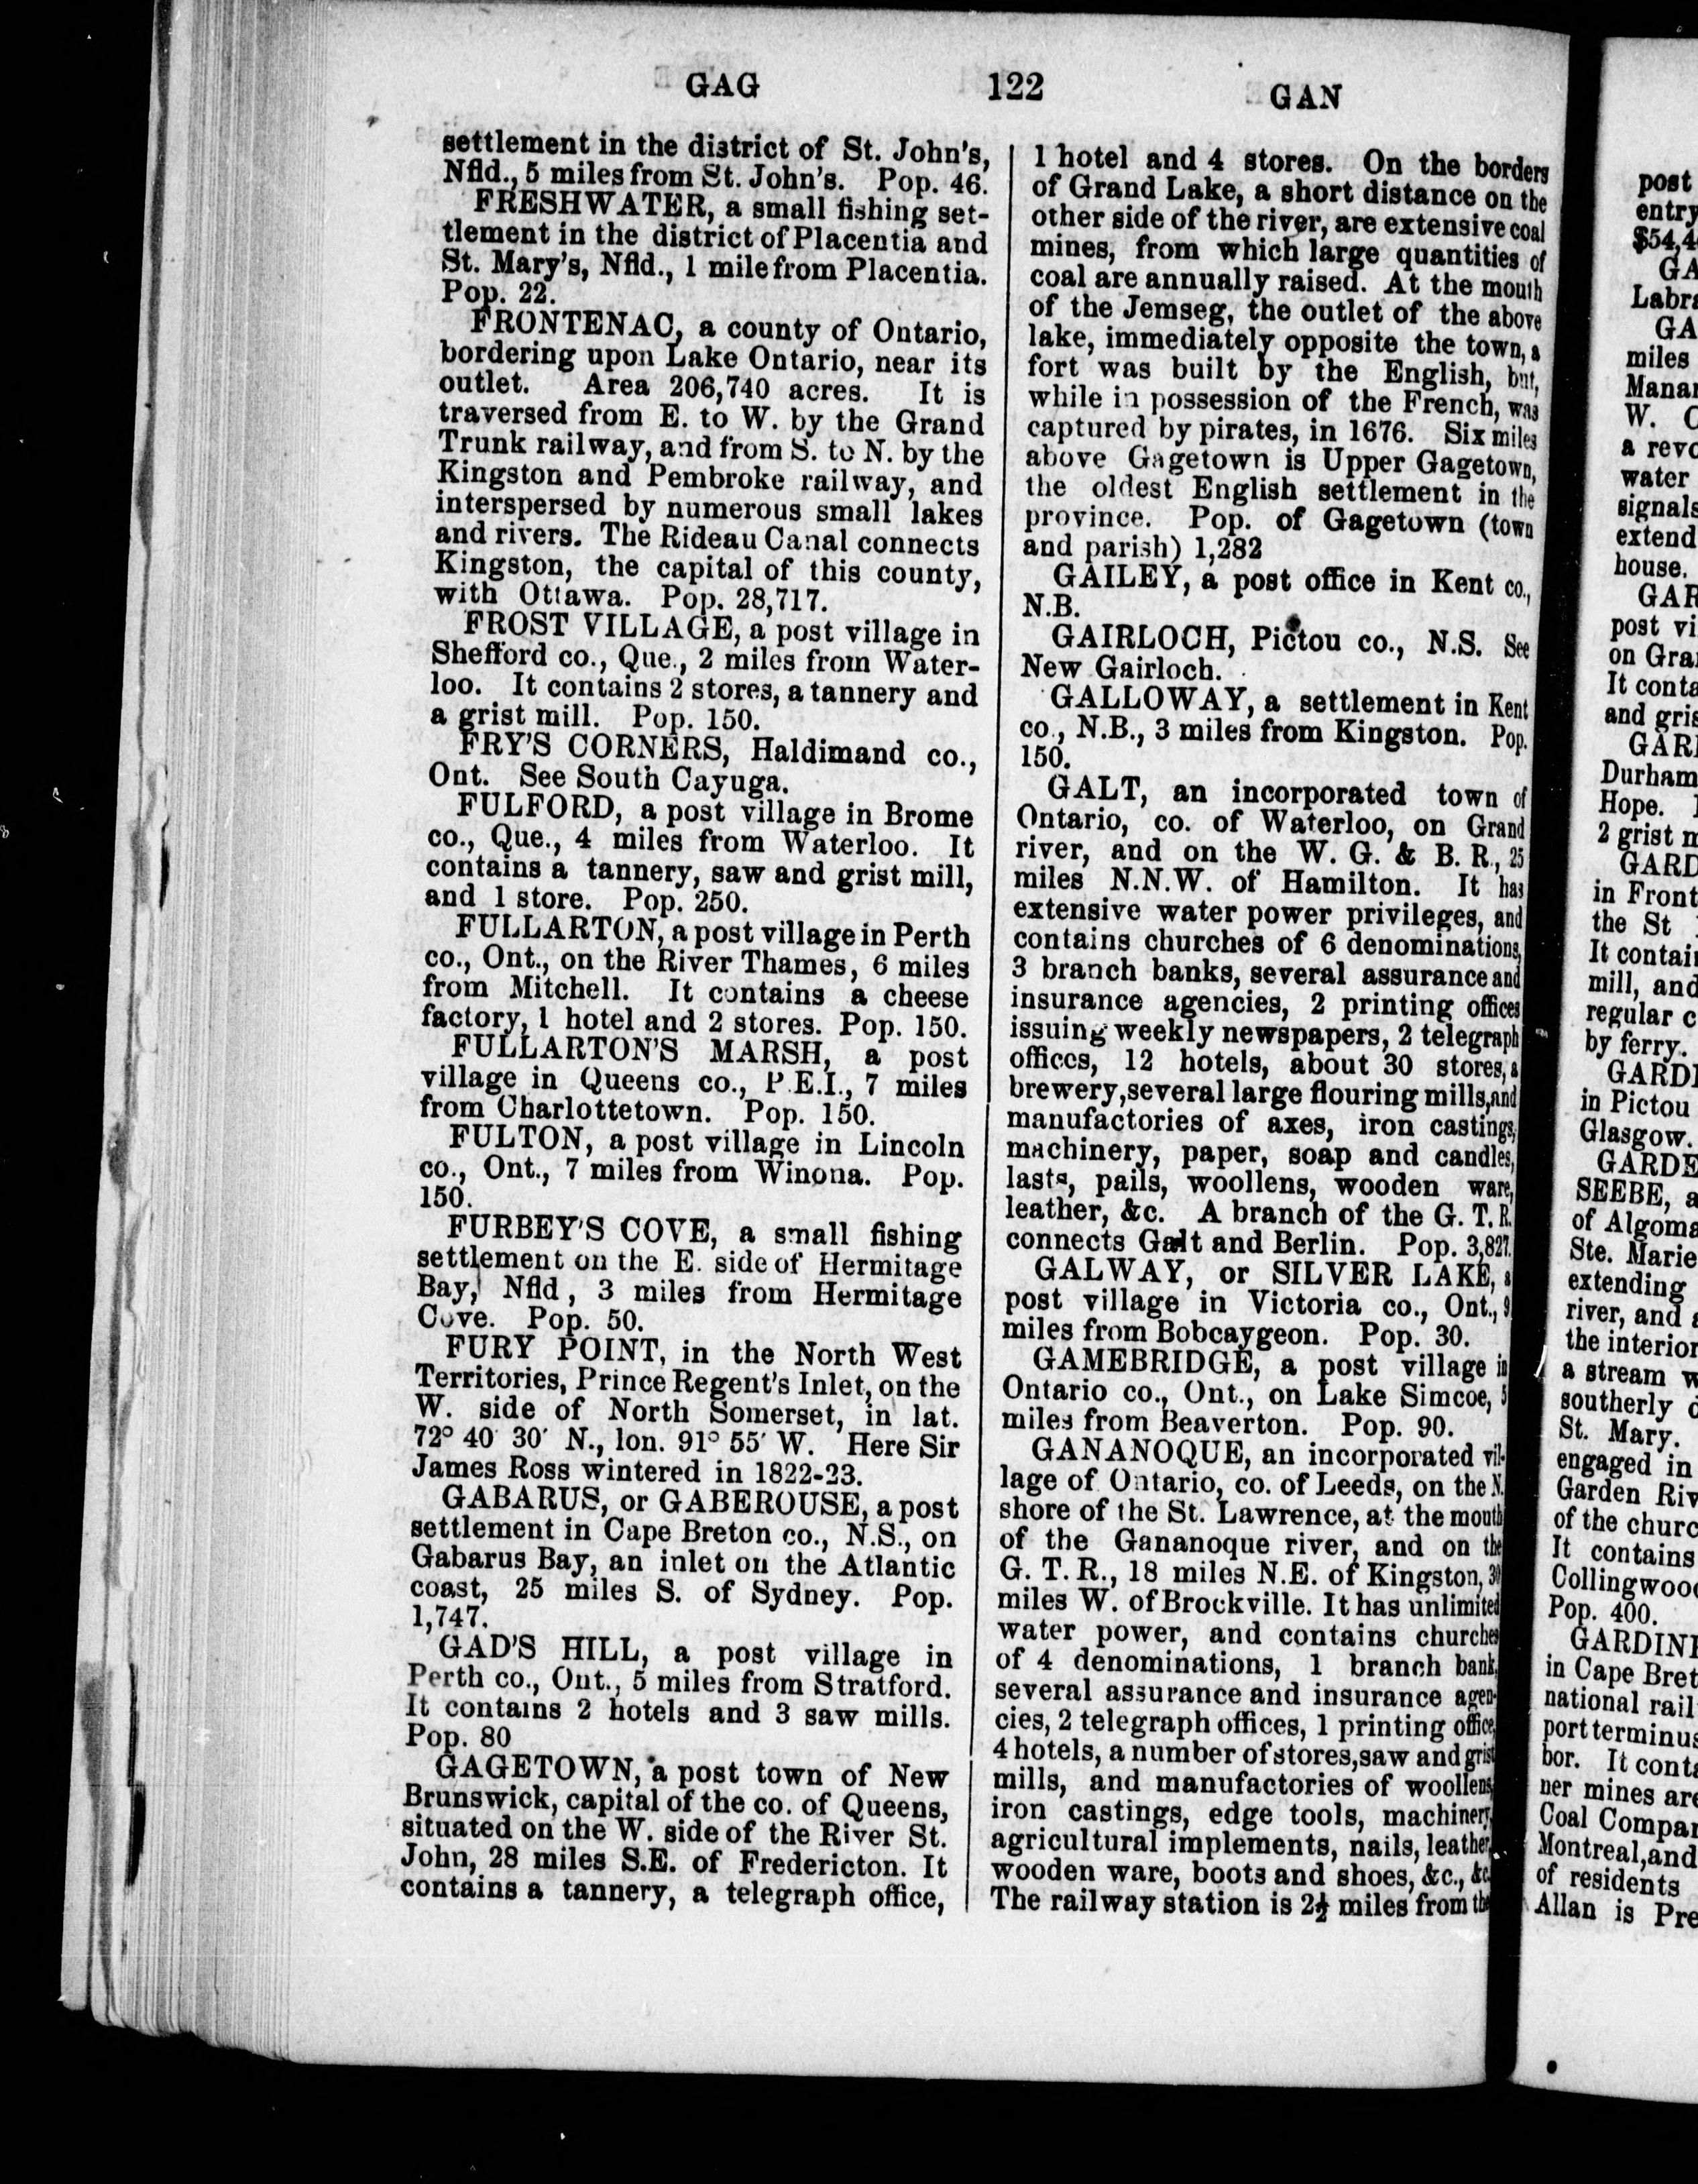 GAG 122 GAN
settlement in the district of St. John's,
Nfld., 5 miles from St. John's. Pop. 46.
FRESHWATER, a small fishing set-
tlement in the district of Placentia and
St. Mary's, Nfld., 1 mile from Placentia.
Pop. 22.
FRONTENAC, a county of Ontario,
bordering upon Lake Ontario, near its
outlet. Area 206,740 acres. It is
traversed from E. to W. by the Grand
Trunk railway, and from S. to N. by the
Kingston and Pembroke railway, and
interspersed by numerous small lakes
and rivers. The Rideau Canal connects
Kingston, the capital of this county,
with Ottawa. Pop. 28,717.
FROST VILLAGE, a post village in
Shefford co., Que., 2 miles from Water-
loo. It contains 2 stores, a tannery and
a grist mill. Pop. 150.
FRY'S CORNERS, Haldimand co.,
Ont. See South Cayuga.
FULFORD, a post village in Brome
co., Que., 4 miles from Waterloo. It
contains a tannery, saw and grist mill,
and 1 store. Pop. 250.
FULLARTON, a post village in Perth
co., Ont., on the River Thames, 6 miles
from Mitchell. It contains a cheese
factory, 1 hotel and 2 stores. Pop. 150.
FULLARTON'S MARSH, a post
village in Queens co., P.E.I., 7 miles
from Charlottetown. Pop. 150.
FULTON, a post village in Lincoln
co., Ont., 7 miles from Winona. Pop.
150.
FURBEY'S COVE, a small fishing
settlement on the E. side of Hermitage
Bay, Nfld, 3 miles from Hermitage
Cove. Pop. 50.
FURY POINT, in the North West
Territories, Prince Regent's Inlet, on the
W. side of North Somerset, in lat.
72° 40 30′ N., lon. 91° 55′ W. Here Sir
James Ross wintered in 1822-23.
GABARUS, or GABEROUSE, a post
settlement in Cape Breton co., N.S., on
Gabarus Bay, an inlet on the Atlantic
coast, 25 miles S. of Sydney. Pop.
1,747.
GAD'S HILL, a post village in
Perth co., Ont., 5 miles from Stratford.
It contains 2 hotels and 3 saw mills.
Pop. 80
GAGETOWN, a post town of New
Brunswick, capital of the co. of Queens,
situated on the W. side of the River St.
John, 28 miles S.E. of Fredericton. It
contains a tannery, a telegraph office,
1 hotel and 4 stores. On the borders
of Grand Lake, a short distance on the
other side of the river, are extensive coal
mines, from which large quantities of
coal are annually raised. At the mouth
of the Jemseg, the outlet of the above
lake, immediately opposite the town, a
fort was built by the English, but,
while in possession of the French, was
captured by pirates, in 1676. Six miles
above Gagetown is Upper Gagetown,
the oldest English settlement in the
province. Pop. of Gagetown (town
and parish) 1,282
GAILEY, a post office in Kent co.,
N.B.
GAIRLOCH, Pictou co., N.S. See
New Gairloch.
GALLOWAY, a settlement in Kent
co., N.B., 3 miles from Kingston. Pop.
150.
GALT, an incorporated town of
Ontario, co. of Waterloo, on Grand
river, and on the W. G. & B. R., 25
miles N.N.W. of Hamilton. It has
extensive water power privileges, and
contains churches of 6 denominations,
3 branch banks, several assurance and
insurance agencies, 2 printing offices
issuing weekly newspapers, 2 telegraph
offices, 12 hotels, about 30 stores, a
brewery, several large flouring mills, and
manufactories of axes, iron castings,
machinery, paper, soap and candles,
lasts, pails, woollens, wooden ware,
leather, &c. A branch of the G. T. R.
connects Galt and Berlin. Pop. 3,827.
GALWAY, or SILVER LAKE, a
post village in Victoria co., Ont., 9
miles from Bobcaygeon. Pop. 30.
GAMEBRIDGE, a post village in
Ontario co., Ont., on Lake Simcoe, 5
miles from Beaverton. Pop. 90.
GANANOQUE, an incorporated vil-
lage of Ontario, co. of Leeds, on the N.
shore of the St. Lawrence, at the mouth
of the Gananoque river, and on the
G. T. R., 18 miles N.E. of Kingston, 30
miles W. of Brockville. It has unlimited
water power, and contains churches
of 4 denominations, 1 branch bank,
several assurance and insurance agen-
cies, 2 telegraph offices, 1 printing office,
4 hotels, a number of stores, saw and grist
mills, and manufactories of woollens,
iron castings, edge tools, machinery,
agricultural implements, nails, leather,
wooden ware, boots and shoes, &c., &c.
The railway station is 2½ miles from the
post
entry
$54,4
GA
Labra
GA
miles
Manar
W. C
a revo
water
signals
extend
house.
GAR
post vi
on Gra
It conta
and gris
GAR
Durham
Hope.
2 grist m
GARD
in Front
the St
It contai
mill, and
regular c
by ferry.
GARD
in Pictou
Glasgow.
GARDE
SEEBE, a
of Algoma
Ste. Marie
extending
river, and
the interior
a stream w
southerly
St. Mary.
engaged in
Garden Riv
of the churc
It contains
Collingwood
Pop. 400.
GARDIN
in Cape Bret
national rail
port terminus
bor. It cont
ner mines are
Coal Compan
Montreal, and
of residents
Allan is Pre